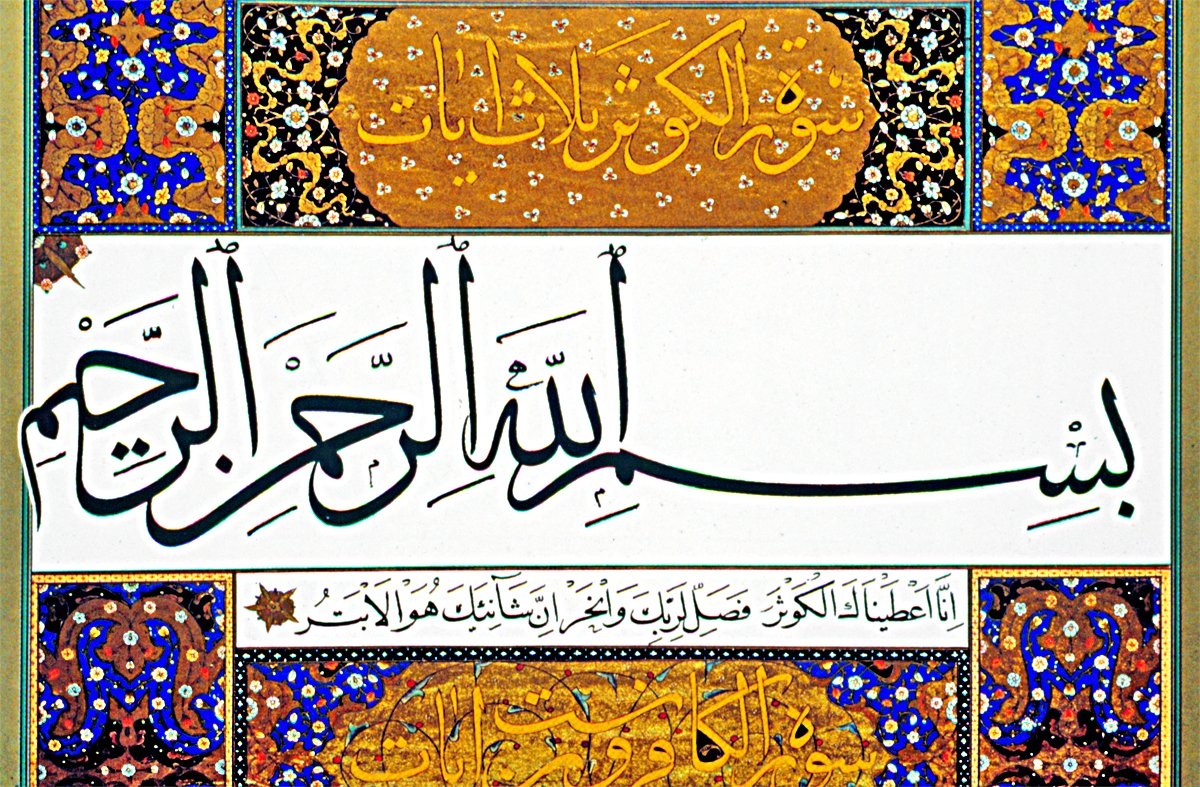 سورة الكوثر ثلاث ايات
بِسْمِ اللّٰهِ الرَّحْمٰنِ الرَّحِيمِ
اِنَّا اَعْطَيْنَاكَ الْكَوْثَرَ فَصَلِّ لِرَبِّكَ وَانْحَرْ اِنَّ شَانِئَكَ هُوَ الْاَبْتَرُ
سورة الكافرون ست ايات